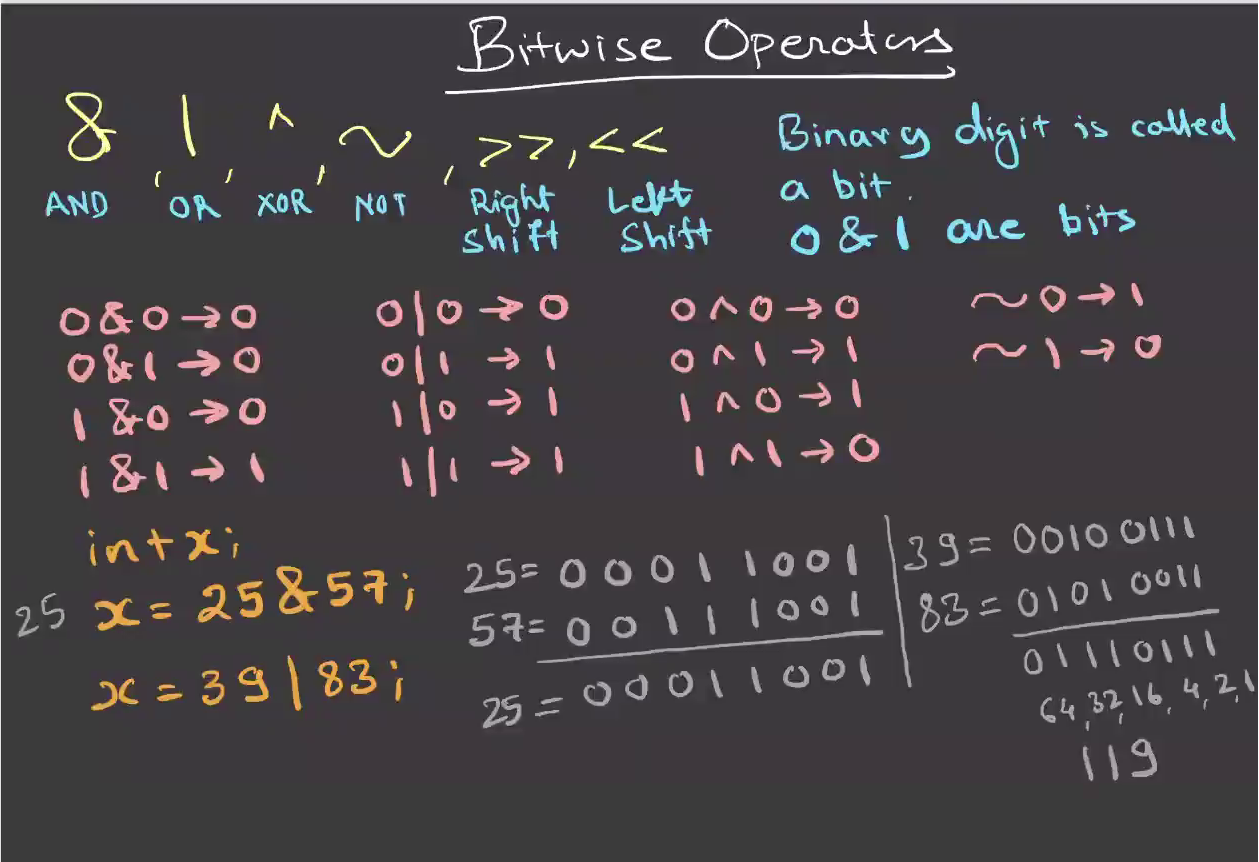 Bitwise Operators
& | ^ ~ , >>, <<
AND , OR , XOR , NOT , Right Shift Left Shift
Binary digit is called
a bit.
0 & 1 are bits
0&0→0 0|0→0 0^0→0 ~0→1
0&1→0 0|1→1 0^1→1 ~1→0
1&0→0 1|0→1 1^0→1
1&1→1 1|1→1 1^1→0
int x;
25 x = 25&57;
x = 39|83;
25= 00011001
57= 00111001
25 = 00011001
39= 00100111
83= 01010011
01110111
64,32,16,4,2,1
119